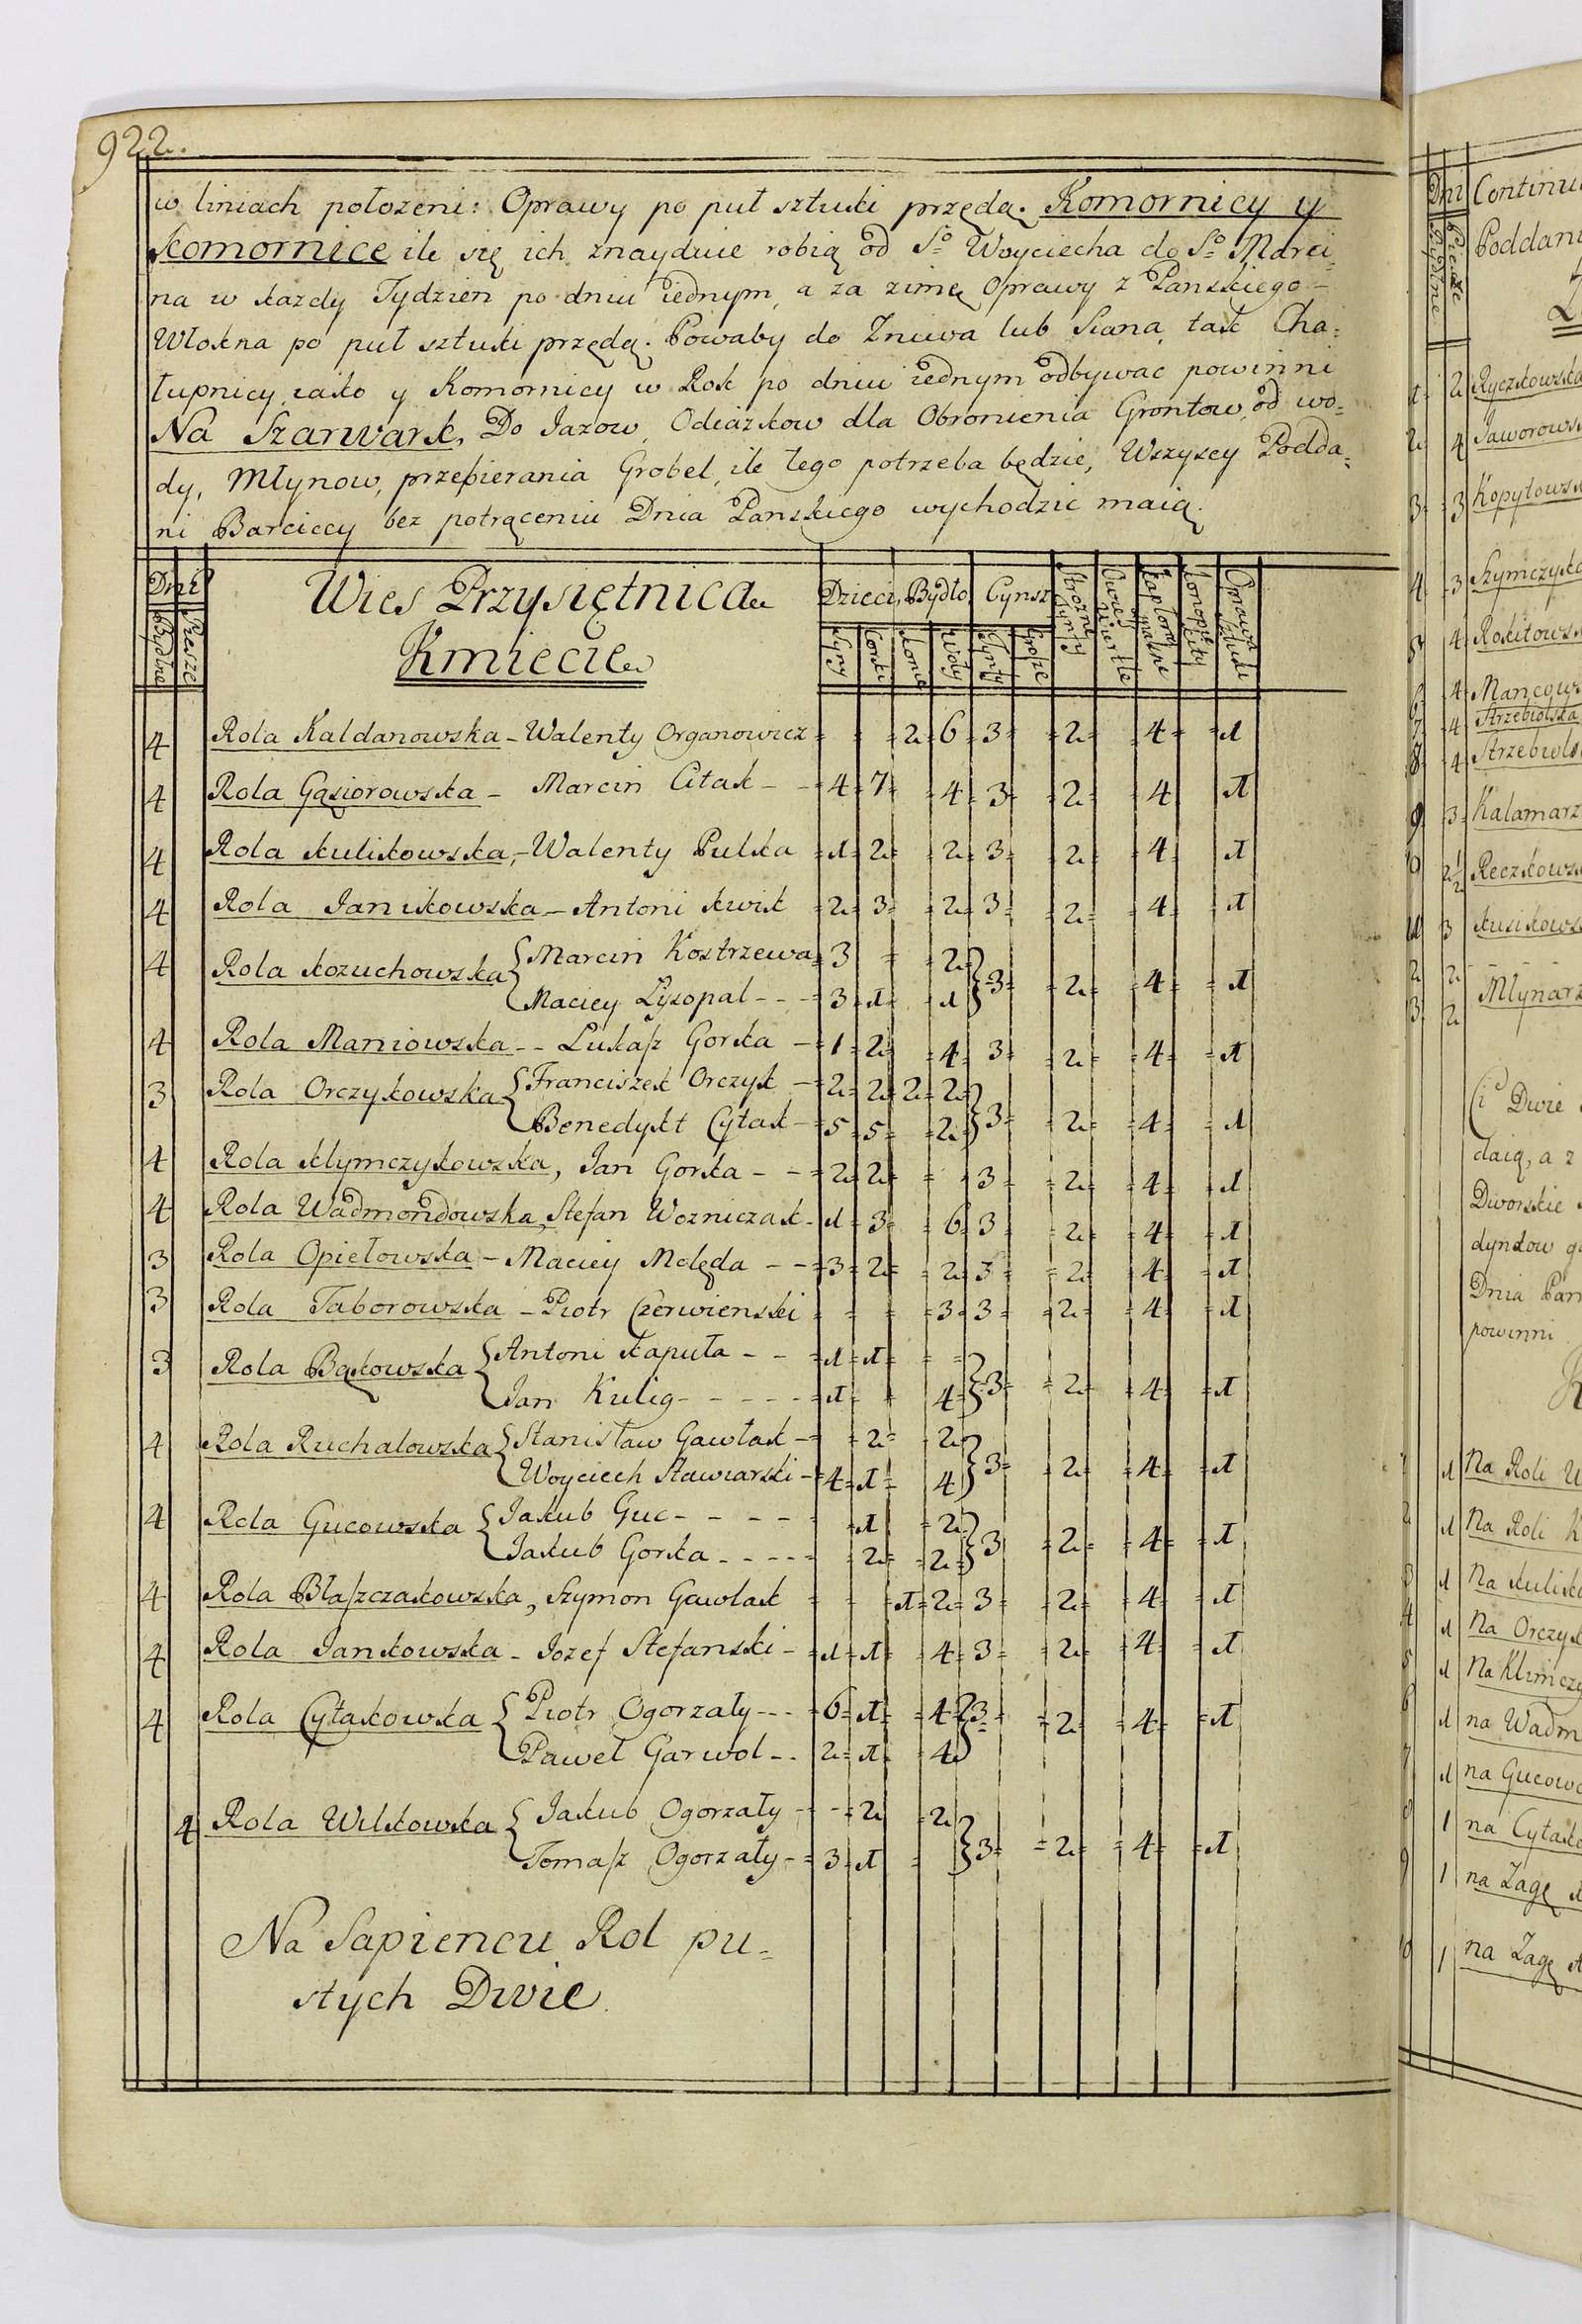 922.
w liniach położeni: Oprawy po puł sztuki przędą. Komornicy y
Komornice ile się ich znayduie robią od So Woyciecha do So Marci=
na w kazdy Tydzien po dniu iednym, a za zimę Oprawy z Panskiego -
Włokna po puł sztuki przędą. Powaby do Zniwa lub Siana, tak Cha=
łupnicy iako y Komornicy w Rok po dniu iednym odbywac powinni
Na Szarwark, Do Iazow, Odciazkow dla Obronienia Grontow od wo=
dy, Młynow, przebierania Grobel, ile tego potrzeba będzie, Wszyscy Podda=
ni Barciccy bez potrąceniu Dnia Panskiego wychodzic maią.
Dni Wies Przysiętnica Dzieci, Bydło, Cynsz
Bydłne Piesze Kmiecie Syny Corki Konie Woły Zynty Grosze
4 Rola Kaldanowska - Walenty Organowicz = = = 2 = 6 = 3 = = 2 = = 4 = = 1
4 Rola Gąsiorowska - Marcin Citak - - 4 = 7 = = 4 = 3 = = 2 = = 4 = 1
4 Rola Kulikowska, - Walenty Pulka = 1 = 2 = = 2 = 3 = = 2 = = 4 = 1
4 Rola Ianikowska - Antoni Kwik = 2 = 3 = = 2 = 3 = = 2 = = 4 = 1
4 Rola Kozuchowska { Marcin Kostrzewa = 3 = = 2 } 3 = = 2 = = 4 = = 1
Maciey Lyzopal - - - 3 = 1 = = 1
4 Rola Maniowska - - Lukasz Gorka - = 1 = 2 = = 4 = 3 = = 2 = = 4 = = 1
3 Rola Orczykowska { Franciszek Orczyk - = 2 = 2 = 2 = 2 } 3 = = 2 = = 4 = = 1
Benedykt Cytak - = 5 = 5 = = 2
4 Rola Klymczykowska, Ian Gorka - - = 2 = 2 = = = 3 = = 2 = = 4 = = 1
4 Rola Wadmondowska, Stefan Wozniczak - 1 = 3 = = 6 = 3 = = 2 = = 4 = = 1
3 Rola Opiełowska - Maciey Molęda - - = 3 = 2 = = 2 = 3 = = 2 = = 4 = = 1
3 Rola Taborowska - Piotr Czerwienski = = = = 3 = 3 = = 2 = = 4 = = 1
3 Rola Bąkowska { Antoni Kaputa - - = 1 = 1 = = = } 3 = = 2 = = 4 = = 1
Jan Kulig - - - - - = 1 = = 4
4 Rola Ruchalowska { Stanisław Gawłak - = = 2 = = 2 } 3 = = 2 = = 4 = = 1
Woyciech Stawiarski - = 4 = 1 = = 4
4 Rola Gucowska { Iakub Guc - - - - - = 1 = = 2 } 3 = 2 = = 4 = = 1
Iakub Gorka - - - - - = 2 = = 2
4 Rola Błaszczakowska, Szymon Gawlak = = = 1 = 2 = 3 = = 2 = = 4 = = 1
4 Rola Iankowska - Iozef Stefanski - = 1 = 1 = = 4 = 3 = = 2 = = 4 = = 1
4 Rola Cytakowska { Piotr Ogorzały - - - = 6 = 1 = = 4 } 3 = = 2 = = 4 = = 1
Paweł Garwol - - 2 = 1 = = 4
4 Rola Wilkowska { Iakub Ogorzały - = - = 2 = 2 } 3 = = 2 = = 4 = = 1
Tomasz Ogorzały - = 3 = 1 =
Na Sapiencu Rol pu=
stych Dwie.
Dni Continu
Poddani
1 2 Ryczkowska
2 4 Jaworows
3 3 Kopytowsk
4 3 Szymczyko
5 4 Rokitows
6 4 Mancows
7 4 Strzebiolska
8 4 Strzebiols
9 3 Kalamarz
10 2½ Reczkows
11 3 Kusikows
2 2
3 2 Młynarz
Ci Dwie
daią, a z
Dworskie
dynkow
Dnia Pan
powinni
1 1 Na Roli
2 1 Na Roli K
3 1 Na Kuliko
4 1 Na Orczyk
5 1 Na Klimczy
6 1 na Wadm
7 1 na Gucow
8 1 na Cytako
9 1 na Zagę
10 1 na Zagę